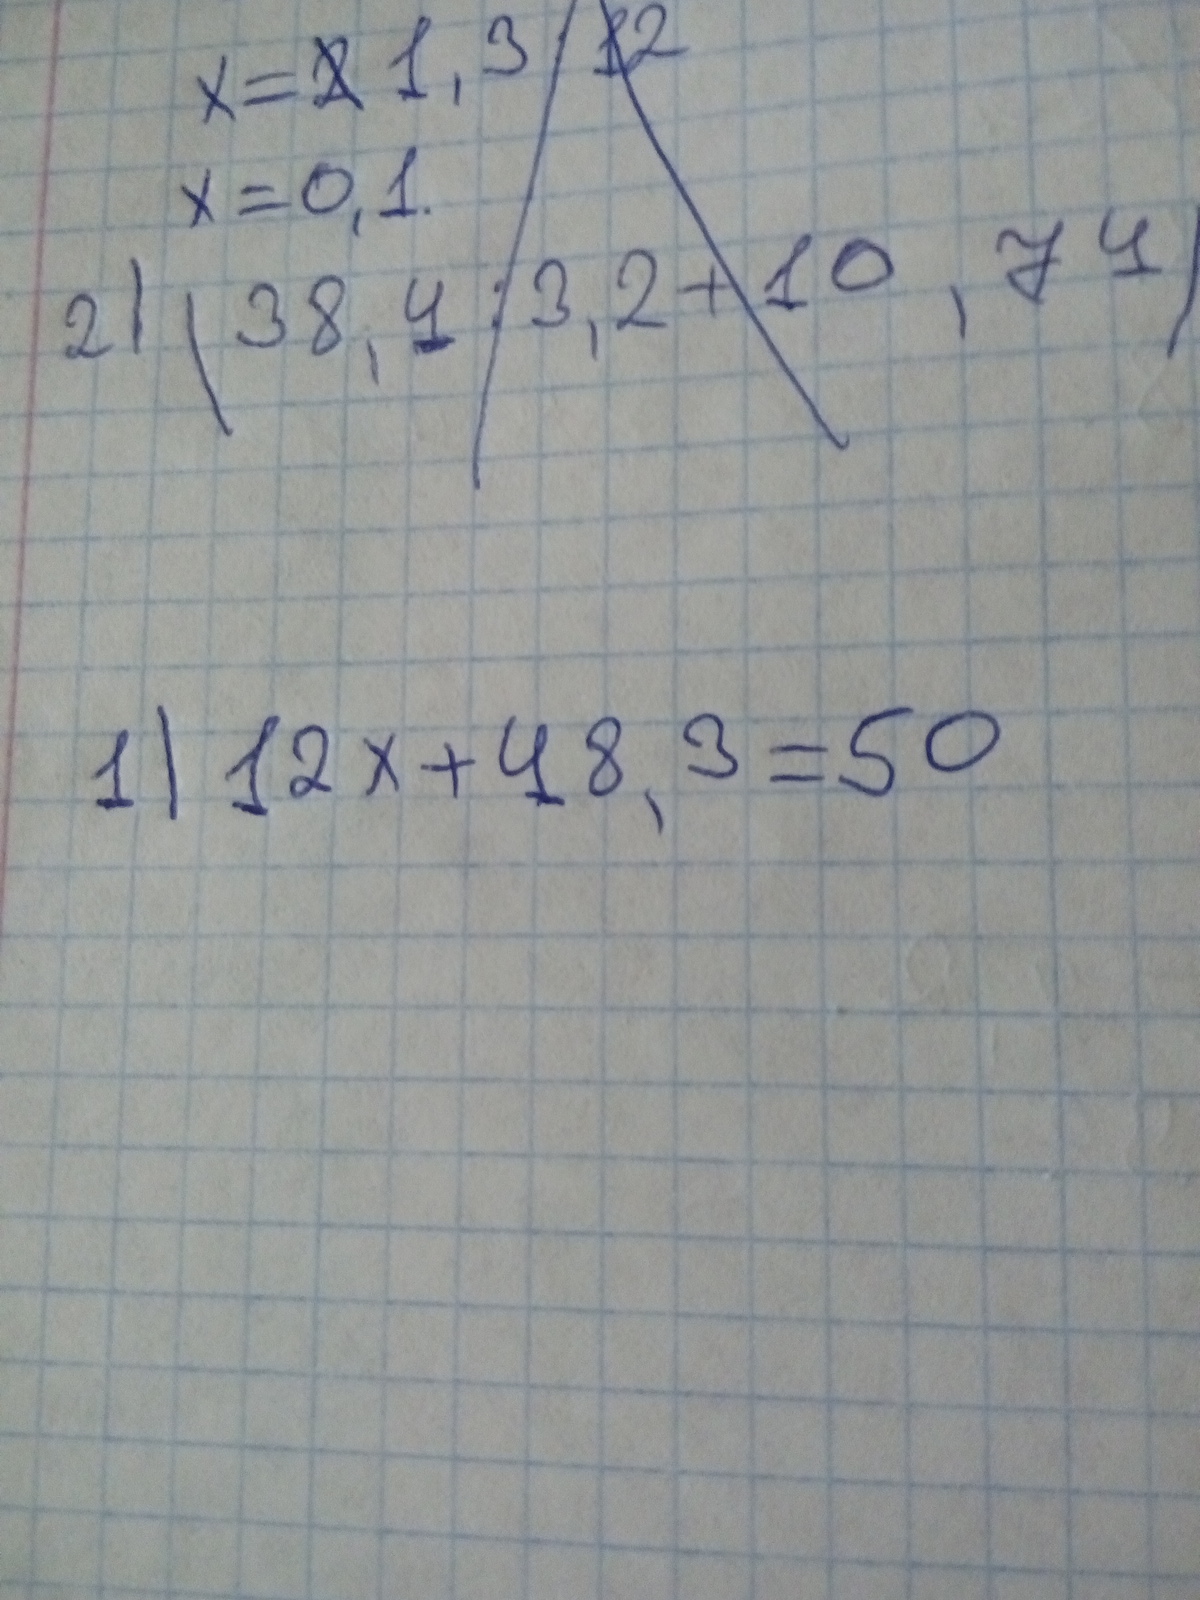 x=2 1,3:12
x=0,1.
2) (38,4:3,2+10,74)
1) 12x+48,3=50